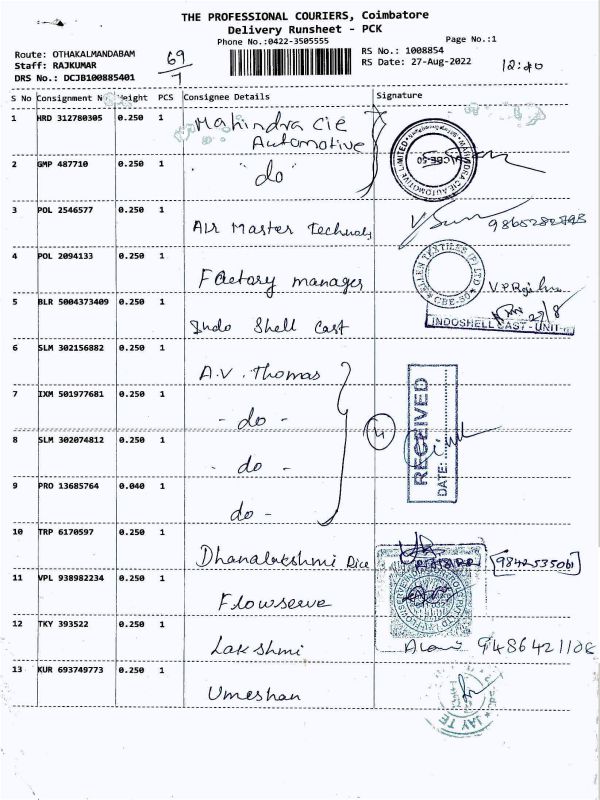 THE PROFESSIONAL COURIERS, Coimbatore
Delivery Runsheet - PCK
Phone No.:0422-3505555
Page No.:1
Route: OTHAKALMANDABAM
Staff: RAJKUMAR
DRS No.: DCJB100885401
69
7
RS No.: 1008854
RS Date: 27-Aug-2022
S No Consignment N eight PCS Consignee Details Signature
1 HRD 312780305 0.250 1 Mahindra Cie
Automotive
2 GMP 487710 0.250 1 "do"
3 POL 2546577 0.250 1 Air Master 9865282843
4 POL 2094133 0.250 1 Factory manager
5 BLR 5004373409 0.250 1 Indo Shell Cast
INDOSHELL CAST - UNIT
6 SLM 302156882 0.250 1 A.V. Thomas
7 IXM 501977681 0.250 1 - do -
8 SLM 302074812 0.250 1 - do -
4
RECEIVED
DATE:
9 PRO 13685764 0.040 1 do -
10 TRP 6170597 0.250 1 Dhanalakshmi Rice
11 VPL 938982234 0.250 1 Flowserve
12 TKY 393522 0.250 1 Lakshmi 9486421108
13 KUR 693749773 0.250 1 Umeshan